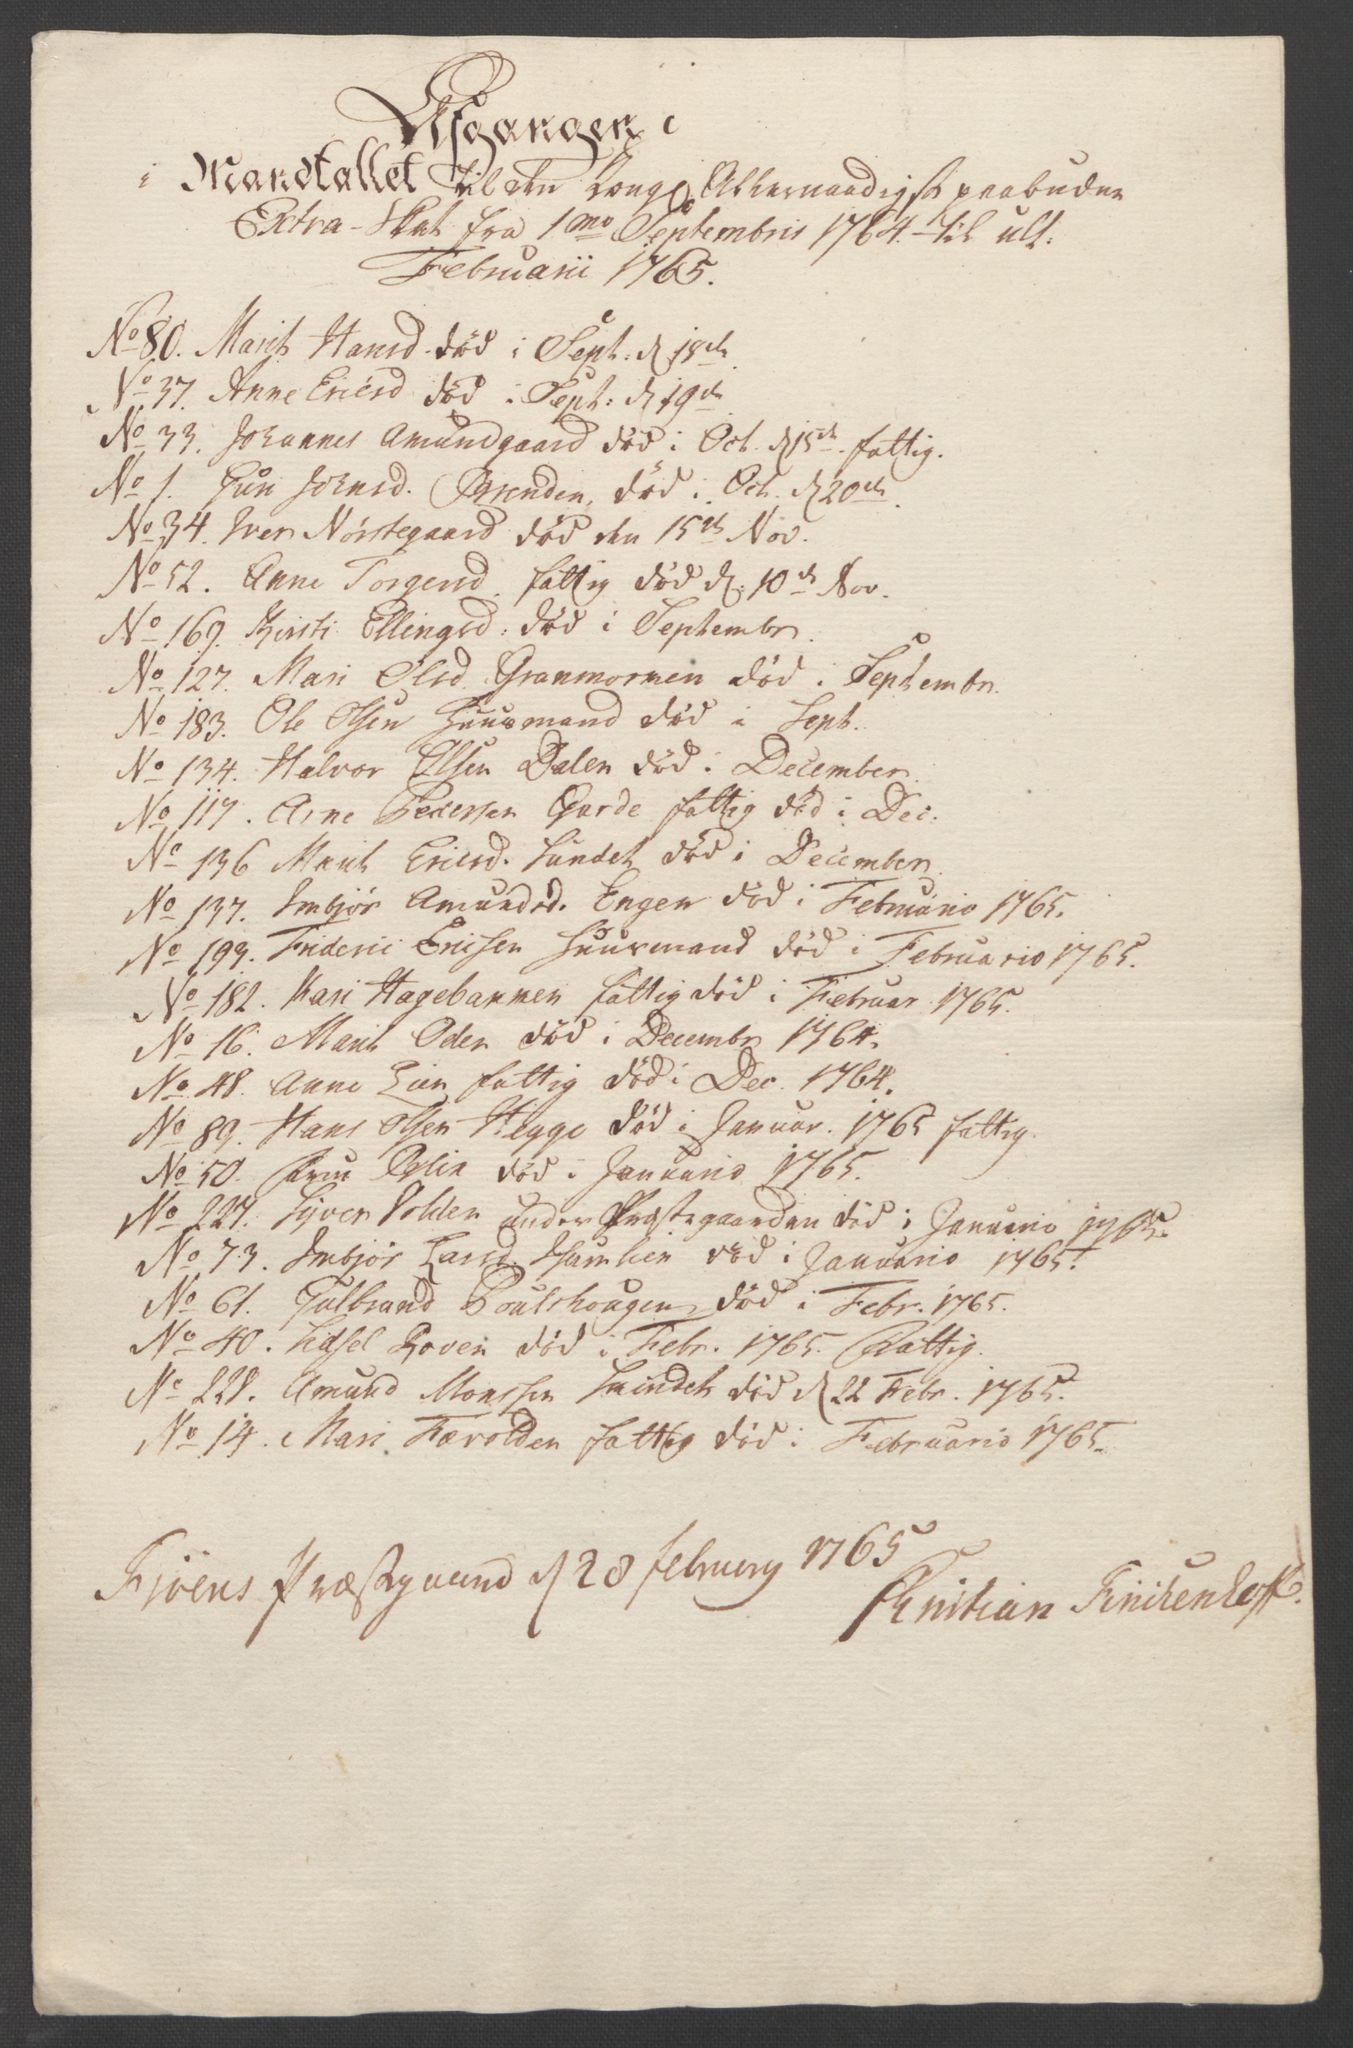 Afgangen i
i Mandtallet til den Kongl Allernaadigst paabudne
Extra-Skat fra 1mo Septembris 1764. til ult:
Februarii 1765.
No 80. Marit Hansd. død i Sept: d 18de.
No 37. Anne Ericsd død i Sept: d 19de
No 33. Johannes Amundgaard død i Oct. d 15de. fattig.
No 1. Guri Johnsd. Brenden, død i Oct. d 20de.
No 34. Iver Nørstegaard død den 15de Nov.
No 52. Anne Torgersd. fattig død d. 10de Nov.
No 169. Kirsti Ellingsd. død i Septembr.
No 127. Mari Olsd. Granmoernen død i Septembr.
No 183. Ole Olsen Huusmand død i Sept.
No 134. Halvor Olsen Dalen død i December.
No 117. Arne Pedersen Garde fattig død i Dec:
No 136 Marit Ericsd. Sundet død i December.
No 137. Imbjør Amundsd. Engen død i Februario 1765.
No 193. Frideric Ericsen Huusmand død i Februario 1765.
No 182. Kari Hagebannen fattig død i Februar. 1765.
No 16. Marit Oden død i Decembr 1764.
No 48. Anne Lien fattig død i Dec. 1764.
No 89. Hans Olsen Hegge død i Januar. 1765 fattig.
No 50. død i Januario 1765.
No 227. Volden under Præstegaarden død i Januario 1765.
No 73. Imbjør Larsd. død i Januario 1765.
No 61. Gulbrand Poulshougen død i Febr. 1765.
No 40. død i Febr. 1765. Fattig.
No 228. Amund Monssen Sundet død d 22 Febr. 1765.
No 14. Mari Fævolden fattig død i Februario 1765.
d 28 februarj 1765
Christian